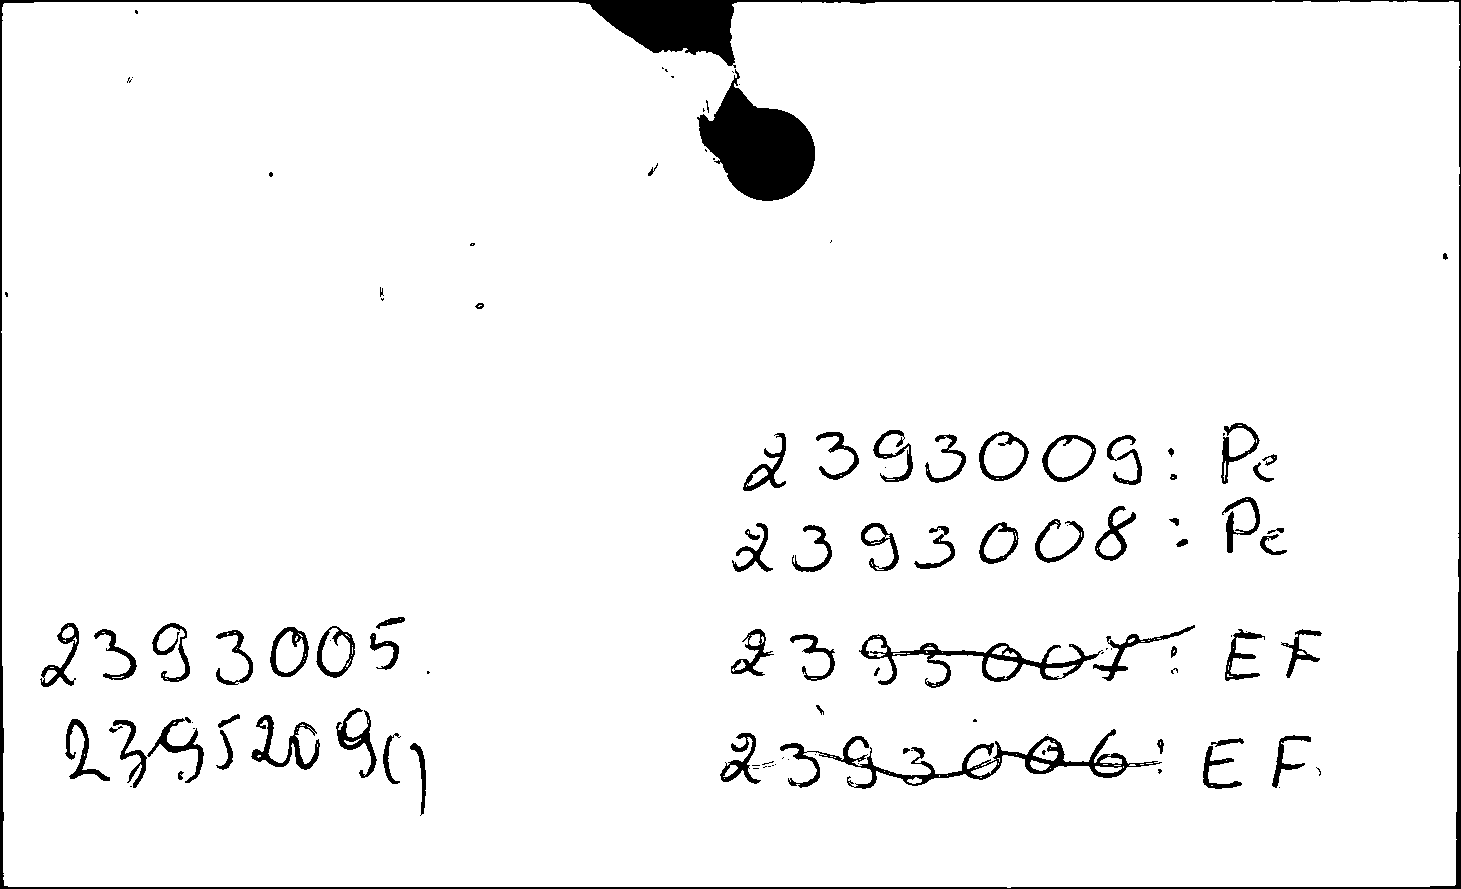 2393009: Pe
2393008: Pe
2393005
2393007: EF
2395209()
2393006: EF